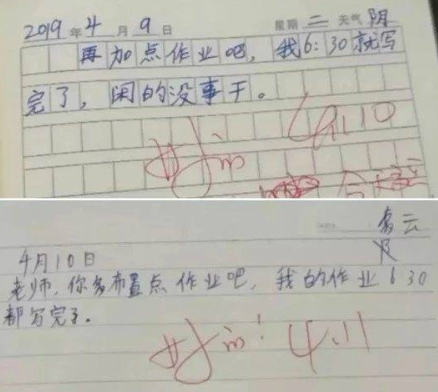 2019年4月9日 星期二 天气阴
再加点作业吧，我6:30就写
完了，闲的没事干。
好的 4.10
多云
4月10日
老师，你多布置点作业吧，我的作业630
都写完了。
好的! 4.11